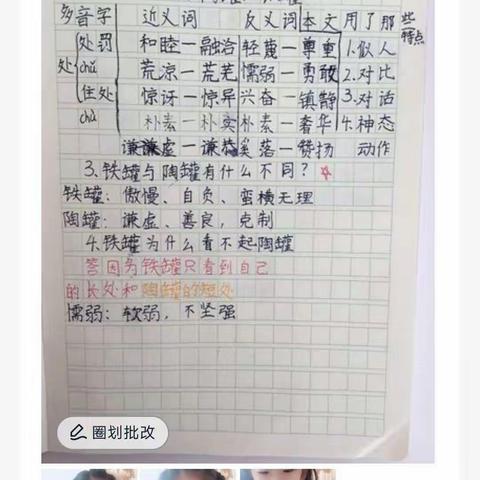 多音字 近义词 反义词 本文用了那些特点
处罚 和睦—融洽 轻蔑—尊重 1.似人
处 chǔ 荒凉—荒芜 懦弱—勇敢 2.对比
住处 惊讶—惊异 兴奋—镇静 3.对话
chù 朴素—朴实 朴素—奢华 4.神态
谦虚—谦恭 奚落—赞扬 动作
3.铁罐与陶罐有什么不同?
铁罐:傲慢、自负、蛮横无理
陶罐:谦虚、善良,克制
4.铁罐为什么看不起陶罐
答因为铁罐只看到自己
的长处和陶罐的短处
懦弱:软弱,不坚强
圈划批改